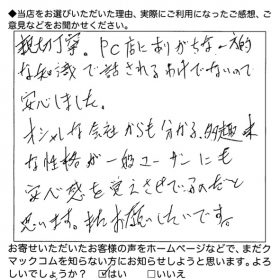 ◆当店をお選びいただいた理由、実際にご利用になったご感想、ご
意見などをお聞かせください。
親切丁寧。PC店にありがちな一方的
な知識で話されるわけでないので
安心しました。
オシャレな会社からも分かる、多趣味
な性格が一般ユーザーにも
安心感を覚えさせているのだと
思います。またお願いしたいです。
お寄せいただいたお客様の声をホームページなどで、まだク
マックコムを知らない方にお知らせしようと思います。よろ
しいでしょうか？ ☑はい □いいえ